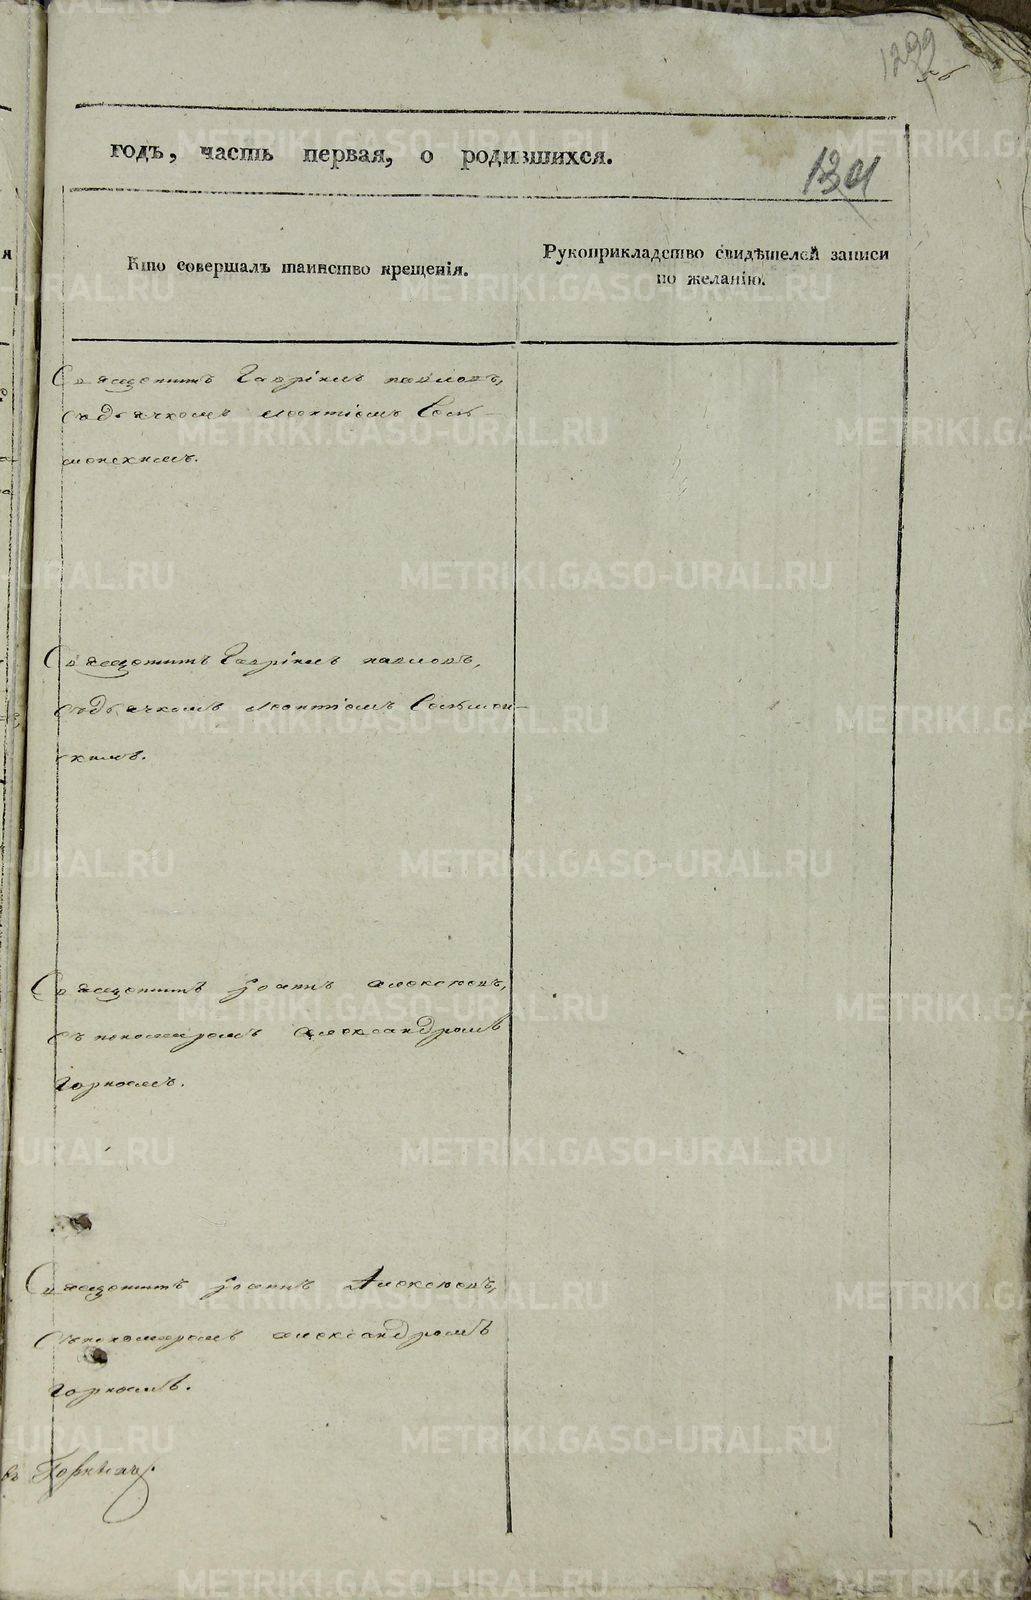 1299
56
годъ, часть первая, о родившихся.
Кто совершалъ таинство крещенія.
Рукоприкладство свидѣтелей записи
по желанію.
Священникъ Гавріилъ Павловъ,
съ дьячкомъ Леонтіемъ
Священникъ Гавріилъ Павловъ,
съ дьячкомъ Леонтіемъ
скимъ.
Священникъ Іоаннъ Алексѣевъ,
съ пономаремъ Александромъ
Горнымъ.
Священникъ Іоаннъ Алексѣевъ,
съ пономаремъ Александромъ
Горнымъ.
METRIKI.GASO-URAL.RU